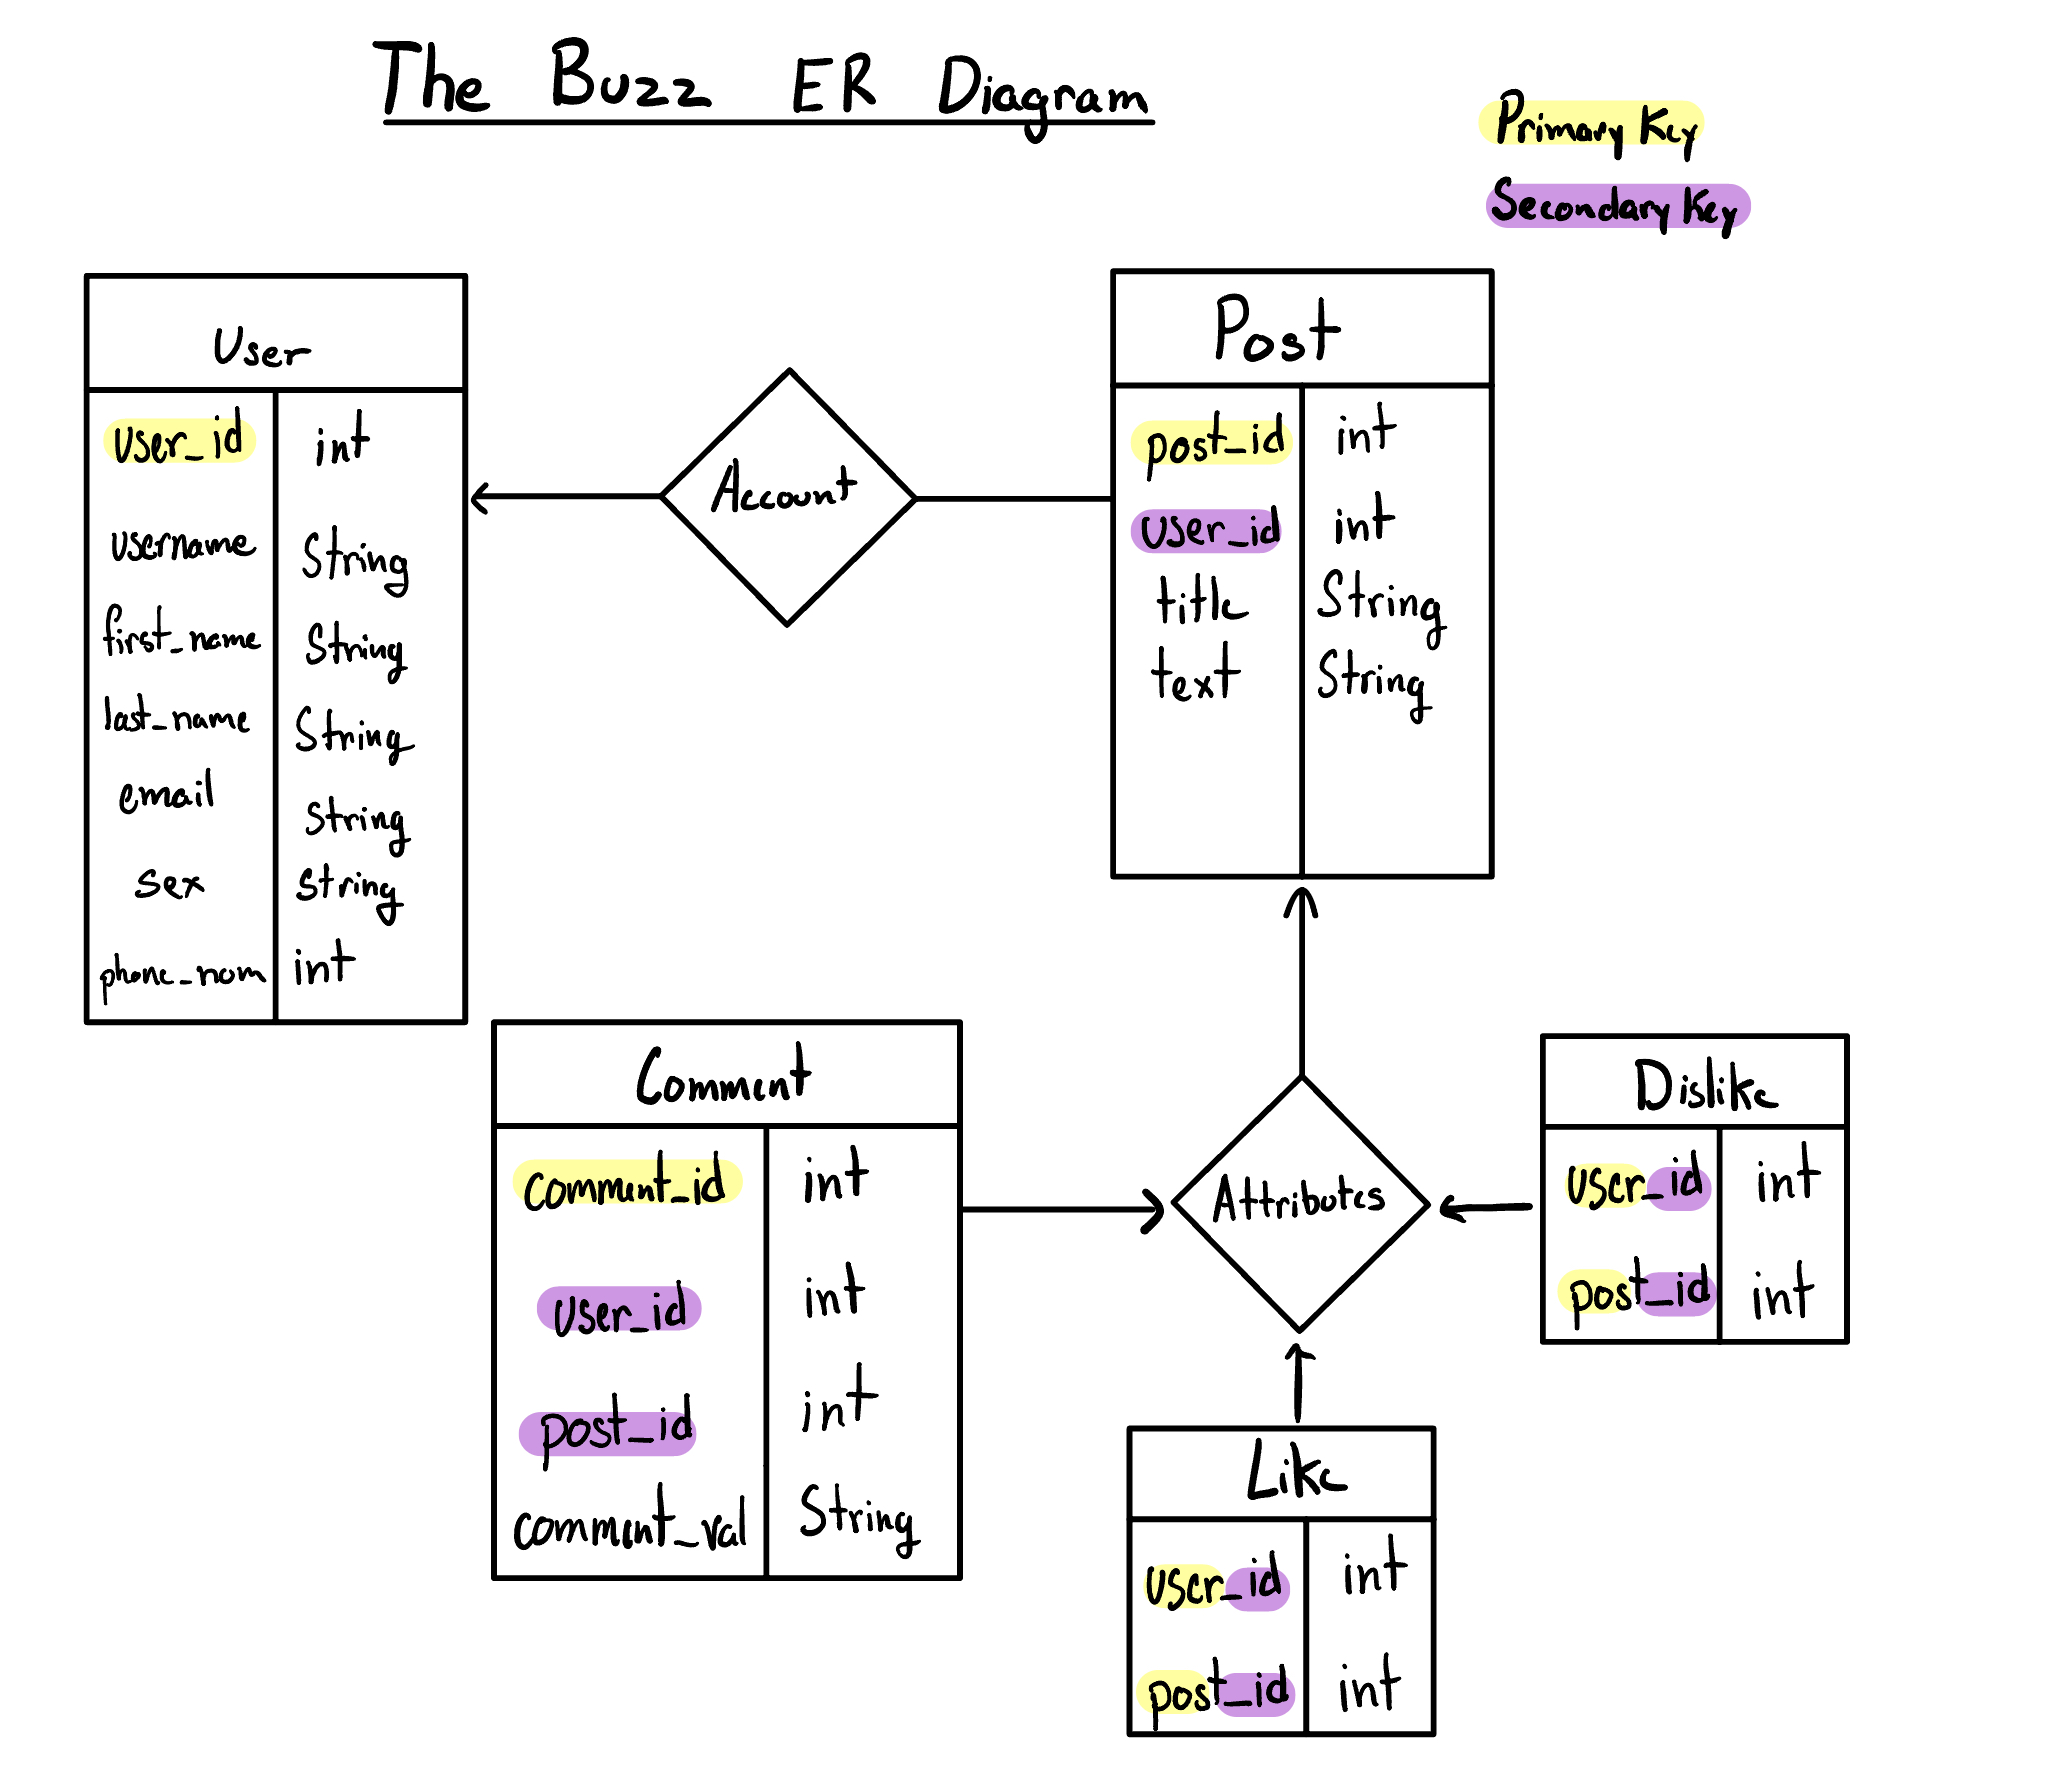 The Buzz ER Diagram
Primary Key
Secondary Key
User
user_id int
username String
first_name String
last_name String
email String
sex String
phone_num int
Account
Post
post_id int
user_id int
title String
text String
Comment
comment_id int
user_id int
post_id int
comment_val String
Attributes
Dislike
user_id int
post_id int
Like
user_id int
post_id int